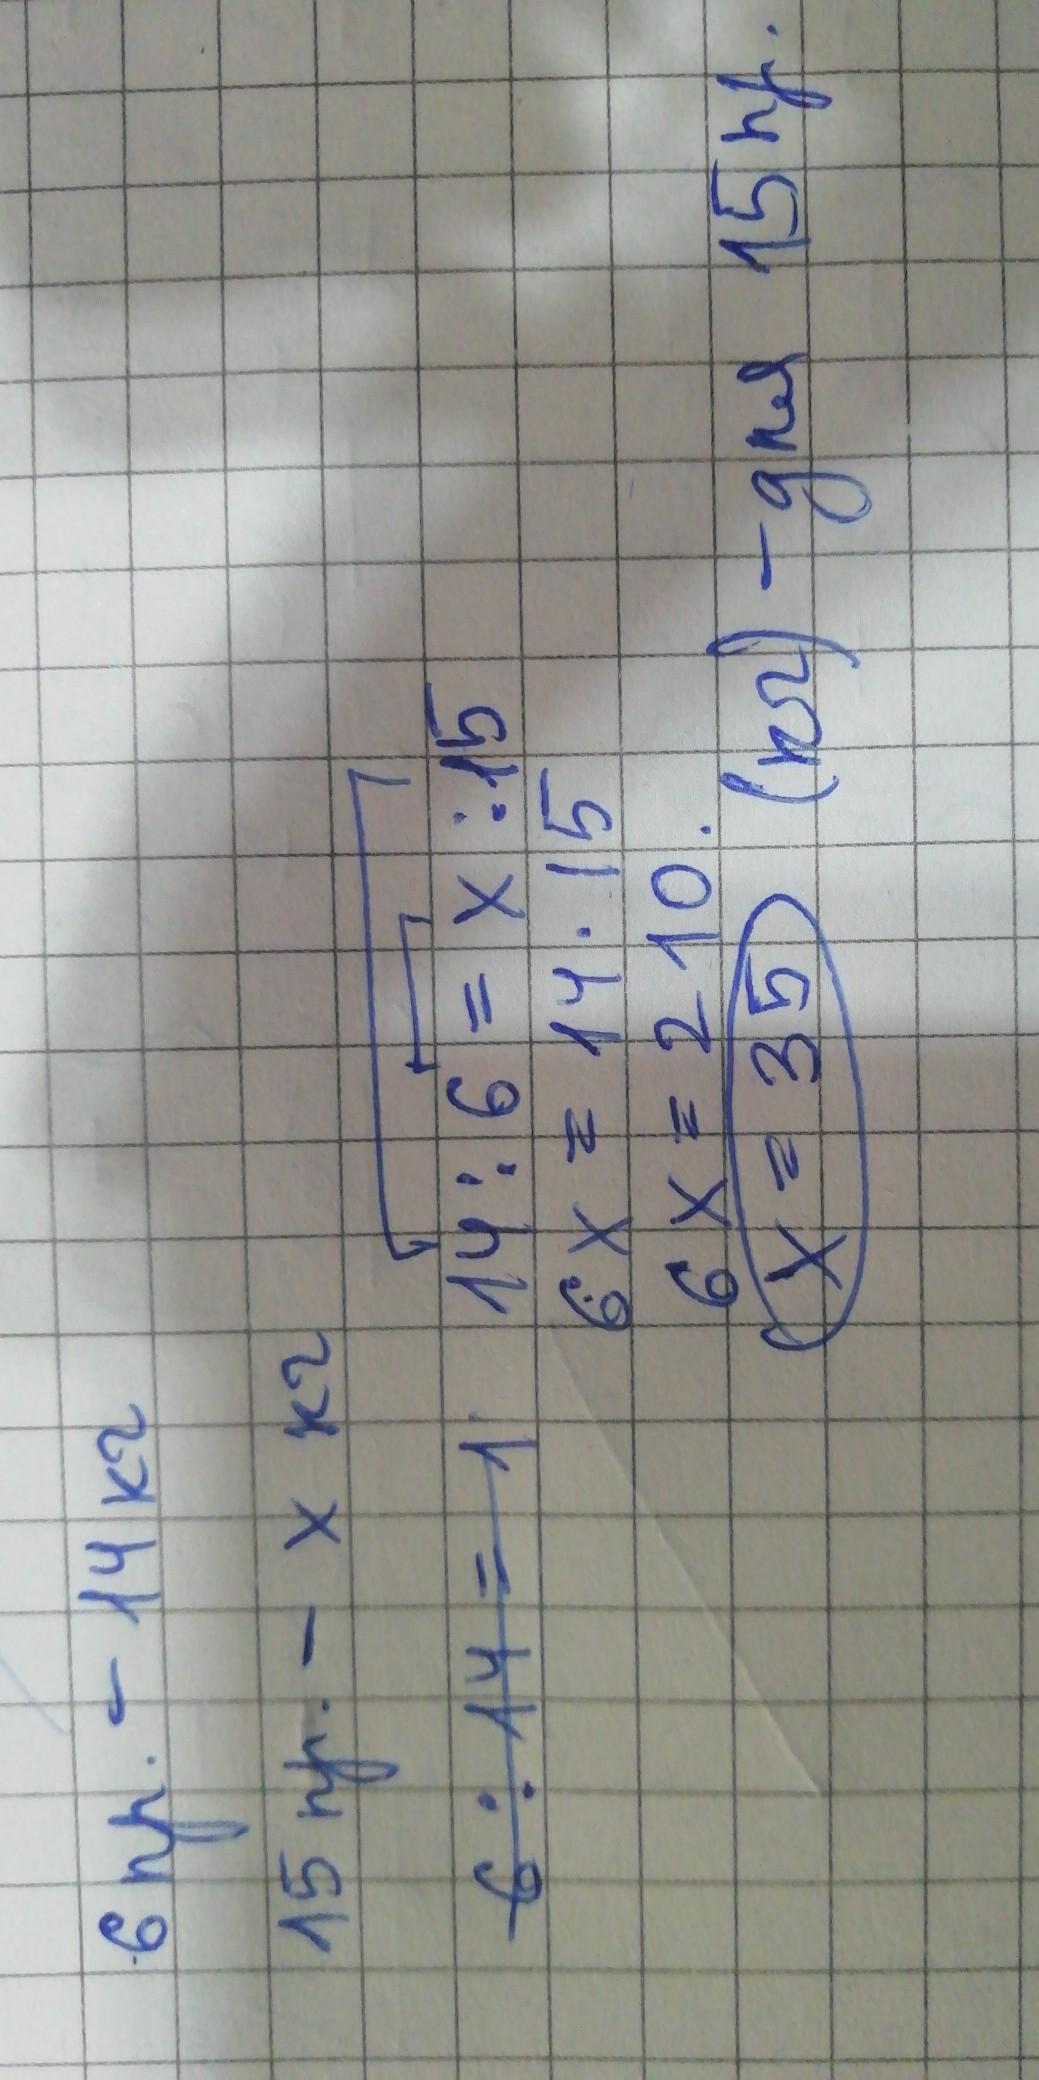 6 пр. - 14 кг
15 пр. - x кг
6 : 14 = 1
14 : 6 = x : 15
6x = 14 · 15
6x = 210.
x = 35 (кг) - для 15 пр.